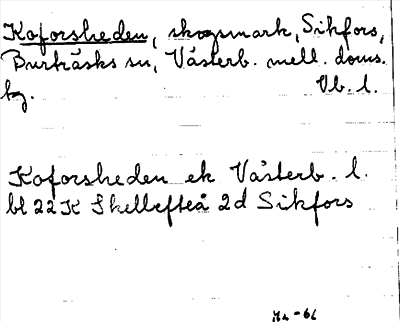 Koforsheden, skogsmark, Sikfors,
Burträsks sn, Västerb. mell. doms.
hg. Vb. l.
Koforsheden ek Västerb. l.
bl 22 K Skellefteå 2d Sikfors